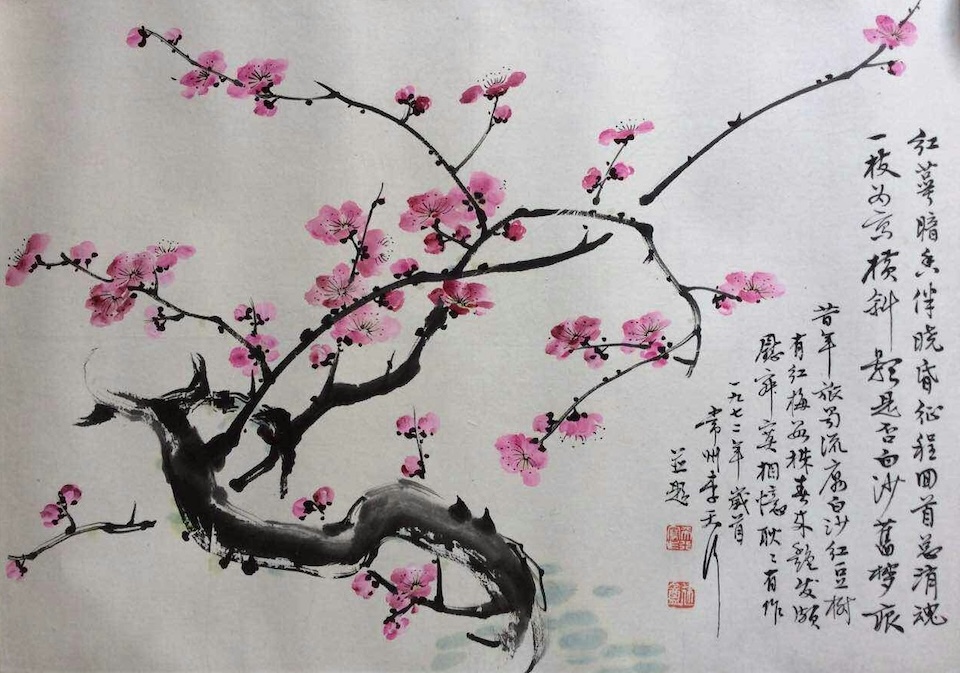 红萼暗香伴晓昏征程回首总消魂
一枝横斜影是否白沙舊梦痕
昔年旅蜀流寓白沙红豆树
有红梅数株春来艳发颇
慰寂寞相憶耿々有作
一九七二年歲首
常州李天行
並题